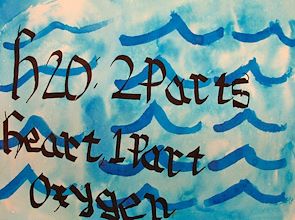 h2O: 2Parts
heart 1Part
Oxygen